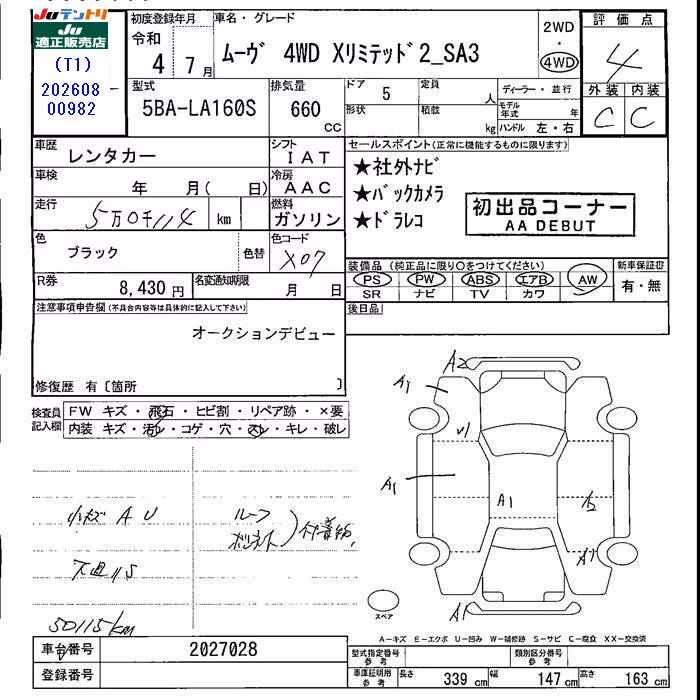 Juテントリ
JU
適正販売店
(T1)
202608-
00982
初度登録年月
令和
4年7月
車名・グレード
ムーヴ 4WD Xリミテッド2_SA3
2WD
4WD
評価点
4
外装 内装
C C
型式
5BA-LA160S
排気量
660
cc
ドア 5
形状
定員 人
積載 kg
ディーラー・並行
モデル年式 年
ハンドル 左・右
車歴
レンタカー
シフト
IAT
車検 年 月(日)
冷房
AAC
走行
5万0千114 km
燃料
ガソリン
色
ブラック
色替
色コード
X07
R券
8,430 円
名変通知期限
月 日
セールスポイント(正常に機能するものに限ります)
★社外ナビ
★バックカメラ
★ドラレコ
初出品コーナー
AA DEBUT
装備品(純正品に限り○をつけてください)
PS PW ABS エアB AW
SR ナビ TV カワ
新車保証書
有・無
後日品
注意事項申告欄(不具合内容等は具体的に記入して下さい)
オークションデビュー
修復歴 有〔箇所 〕
検査員
記入欄
FW キズ・飛石・ヒビ割・リペア跡・×要
内装 キズ・汚レ・コゲ・穴・スレ・キレ・破レ
小キズ A U
下廻りS
ルーフ
ボンネット
50115km
A2
A1
A1
A1
A1
A1
スペア
A-キズ E-エクボ U-凹み W-補修跡 S-サビ C-腐食 XX-交換済
車台番号
2027028
登録番号
型式指定番号
参考
類別区分番号
参考
車庫証明用
参考
長さ 339 cm
幅 147 cm
高さ 163 cm